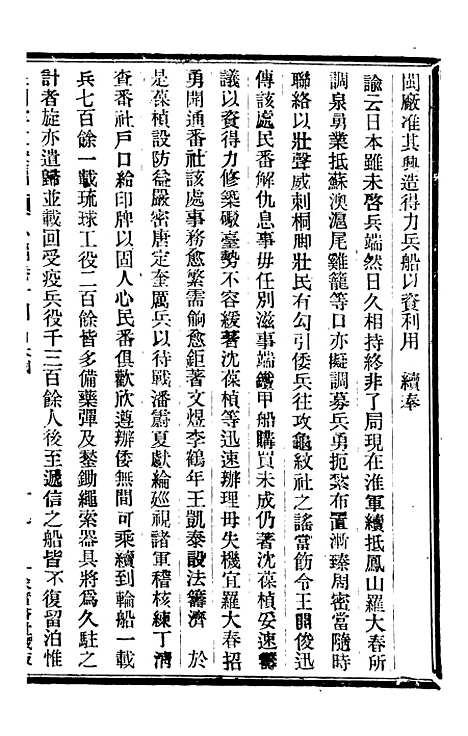 閩廠准其興造得力兵船以資利用　續奉
諭云日本雖未啓兵端然日久相持終非了局現在淮軍續抵鳳山羅大春所
調泉勇業抵蘇澳滬尾雞籠等口亦擬調募兵勇扼紮布置漸臻周密當隨時
聯絡以壯聲威刺桐腳壯民有勾引倭兵往攻龜紋社之謠當飭令王開俊迅
傳該處民番解仇息事毋任別滋事端鐵甲船購買未成仍著沈葆楨妥速籌
議以資得力修築礮臺勢不容緩著沈葆楨等迅速辦理毋失機宜羅大春招
勇開通番社該處事務愈繁需餉愈鉅著文煜李鶴年王凱泰設法籌濟　於
是葆楨設防益嚴密唐定奎厲兵以待戰潘霨夏獻綸巡視諸軍稽核練丁清
查番社戶口給印牌以固人心民番俱歡欣遵辦倭無間可乘續到輪船一載
兵七百餘一載琉球工役二百餘皆多備藥彈及鏨鋤繩索器具將爲久駐之
計者旋亦遣歸並載回受疫兵役千三百餘人後至遞信之船皆不復留泊惟